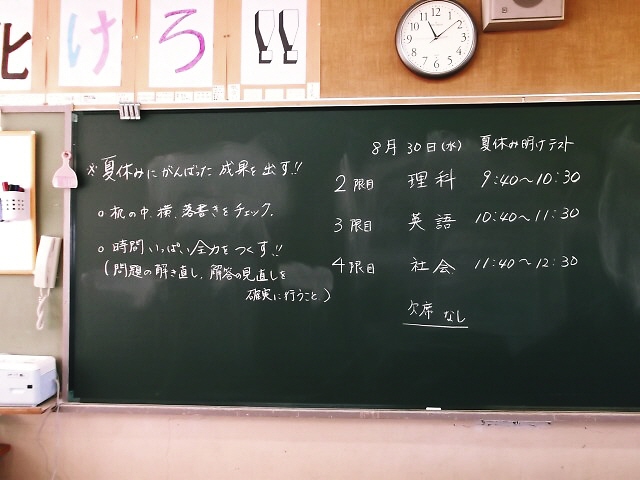 化けろ!!
※夏休みにがんばった成果を出す!!
○ 机の中、横、落書きをチェック。
○ 時間いっぱい全力をつくす!!
(問題の解き直し、解答の見直しを
確実に行うこと)
8月30日(水) 夏休み明けテスト
2限目 理科 9:40～10:30
3限目 英語 10:40～11:30
4限目 社会 11:40～12:30
欠席 なし
12
1
2
3
4
5
6
7
8
9
10
11